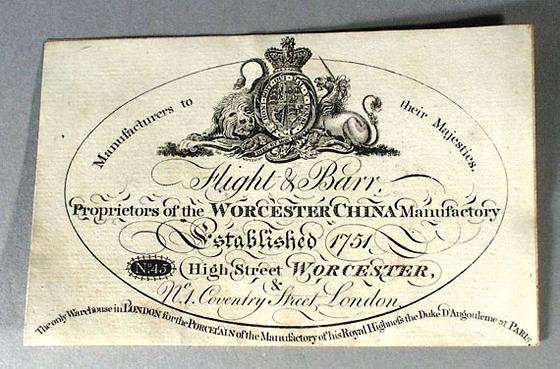 Manufacturers to their Majesties,
Flight & Barr,
Proprietors of the WORCESTER CHINA Manufactory
Established 1751,
No. 45 High Street WORCESTER,
&
No. 1. Coventry Street, London,
The only Warehouse in LONDON for the PORCELAIN of the Manufactory of his Royal Highneſs the Duke D'Angouleme at PARIS.